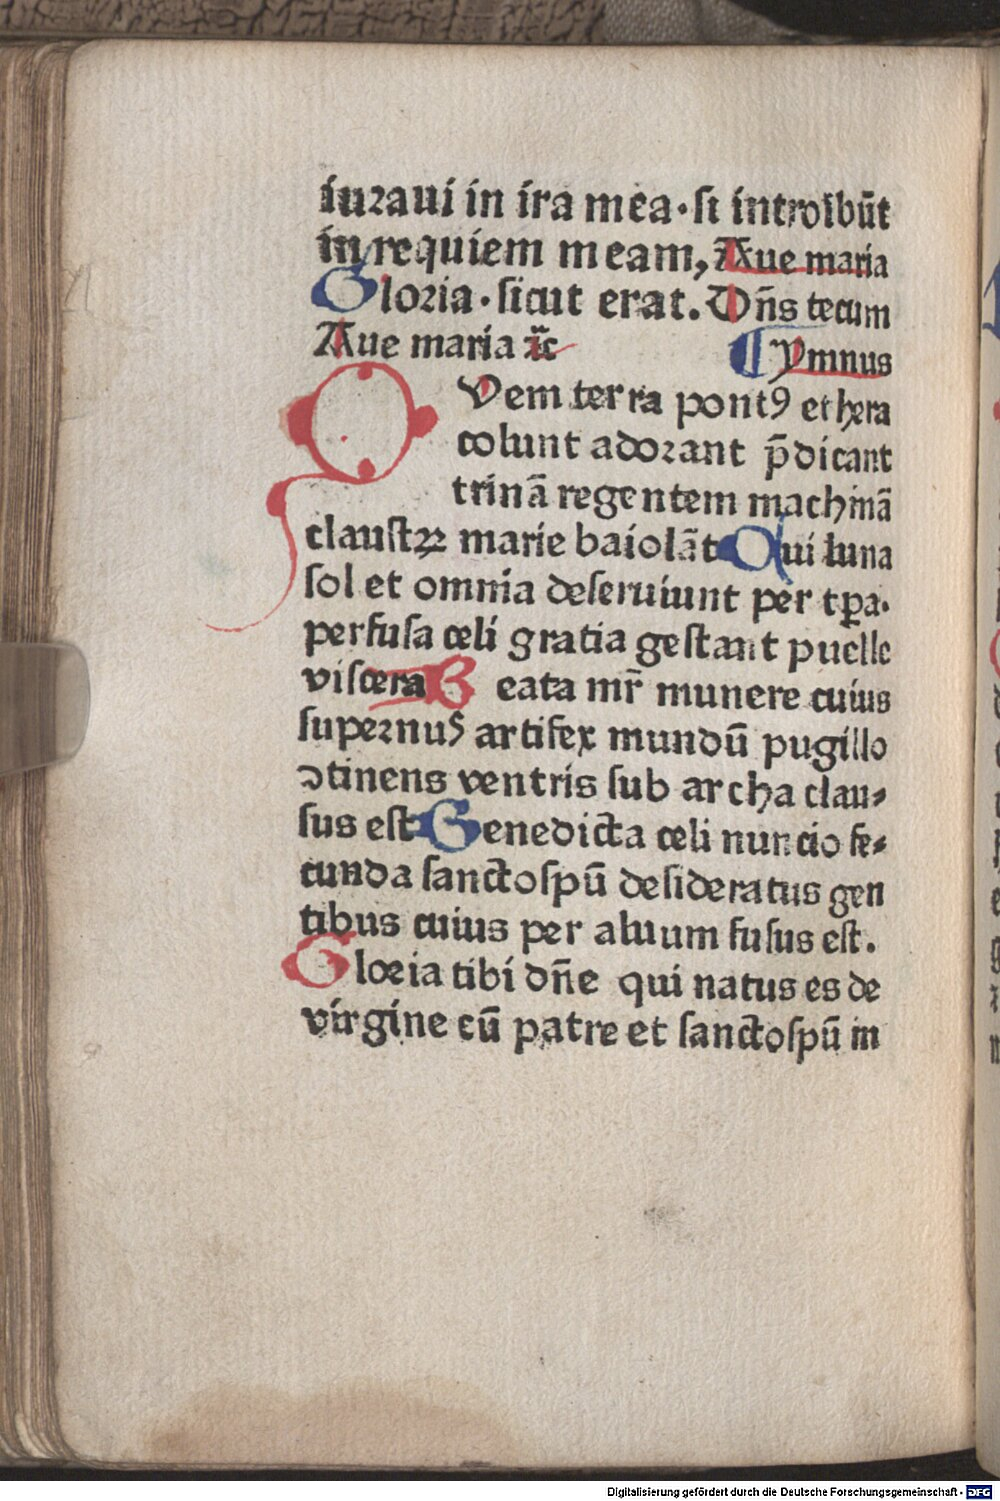 iuraui in ira mea·si introibūt
in requiem meam, Aue maria
Gloria·sicut erat. Dn̄s tecum
Aue maria ⁊c̄ ¶ Ymnus
QVem terra pontꝰ ethera
colunt adorant p̄dicant
trinā regentem machinā
claustꝝ marie baiolāt Qui luna
sol et omnia deseruiunt per tꝑa·
perfusa celi gratia gestant puelle
viscera Beata mr̄ munere cuius
supernus artifex mundū pugillo
ↄtinens ventris sub archa clau⸗
sus est Benedicta celi nuncio fe⸗
cunda sanctospū desideratus gen
tibus cuius per aluum fusus est.
Gloria tibi dn̄e qui natus es de
virgine cū patre et sanctospū in
Digitalisierung gefördert durch die Deutsche Forschungsgemeinschaft - DFG